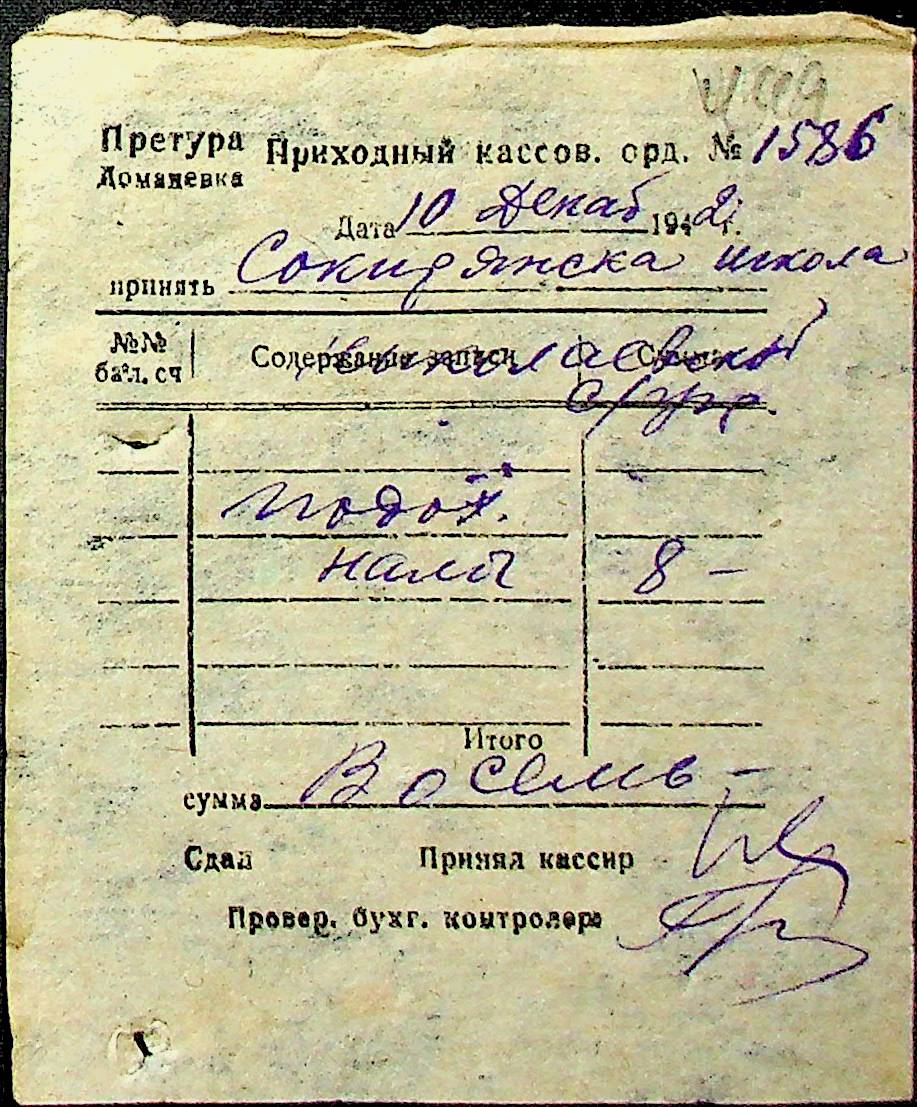 Претура Приходный кассов. орд. № 1586
Доманевка
Дата 10 Декаб 1942 г.
принять Сокирянска школа
№№
бал. сч Содержание записи Сумма
подох.
налог 8 –
Итого
сумма Восемь –
Сдал Принял кассир
Провер. бухг. контролера